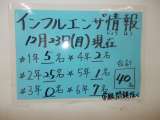 インフルエンザ情報
12月23日(月)現在
*1年5名*4年2名
*2年25名*5年1名
*3年0名*6年7名
合計
40名
学級閉鎖